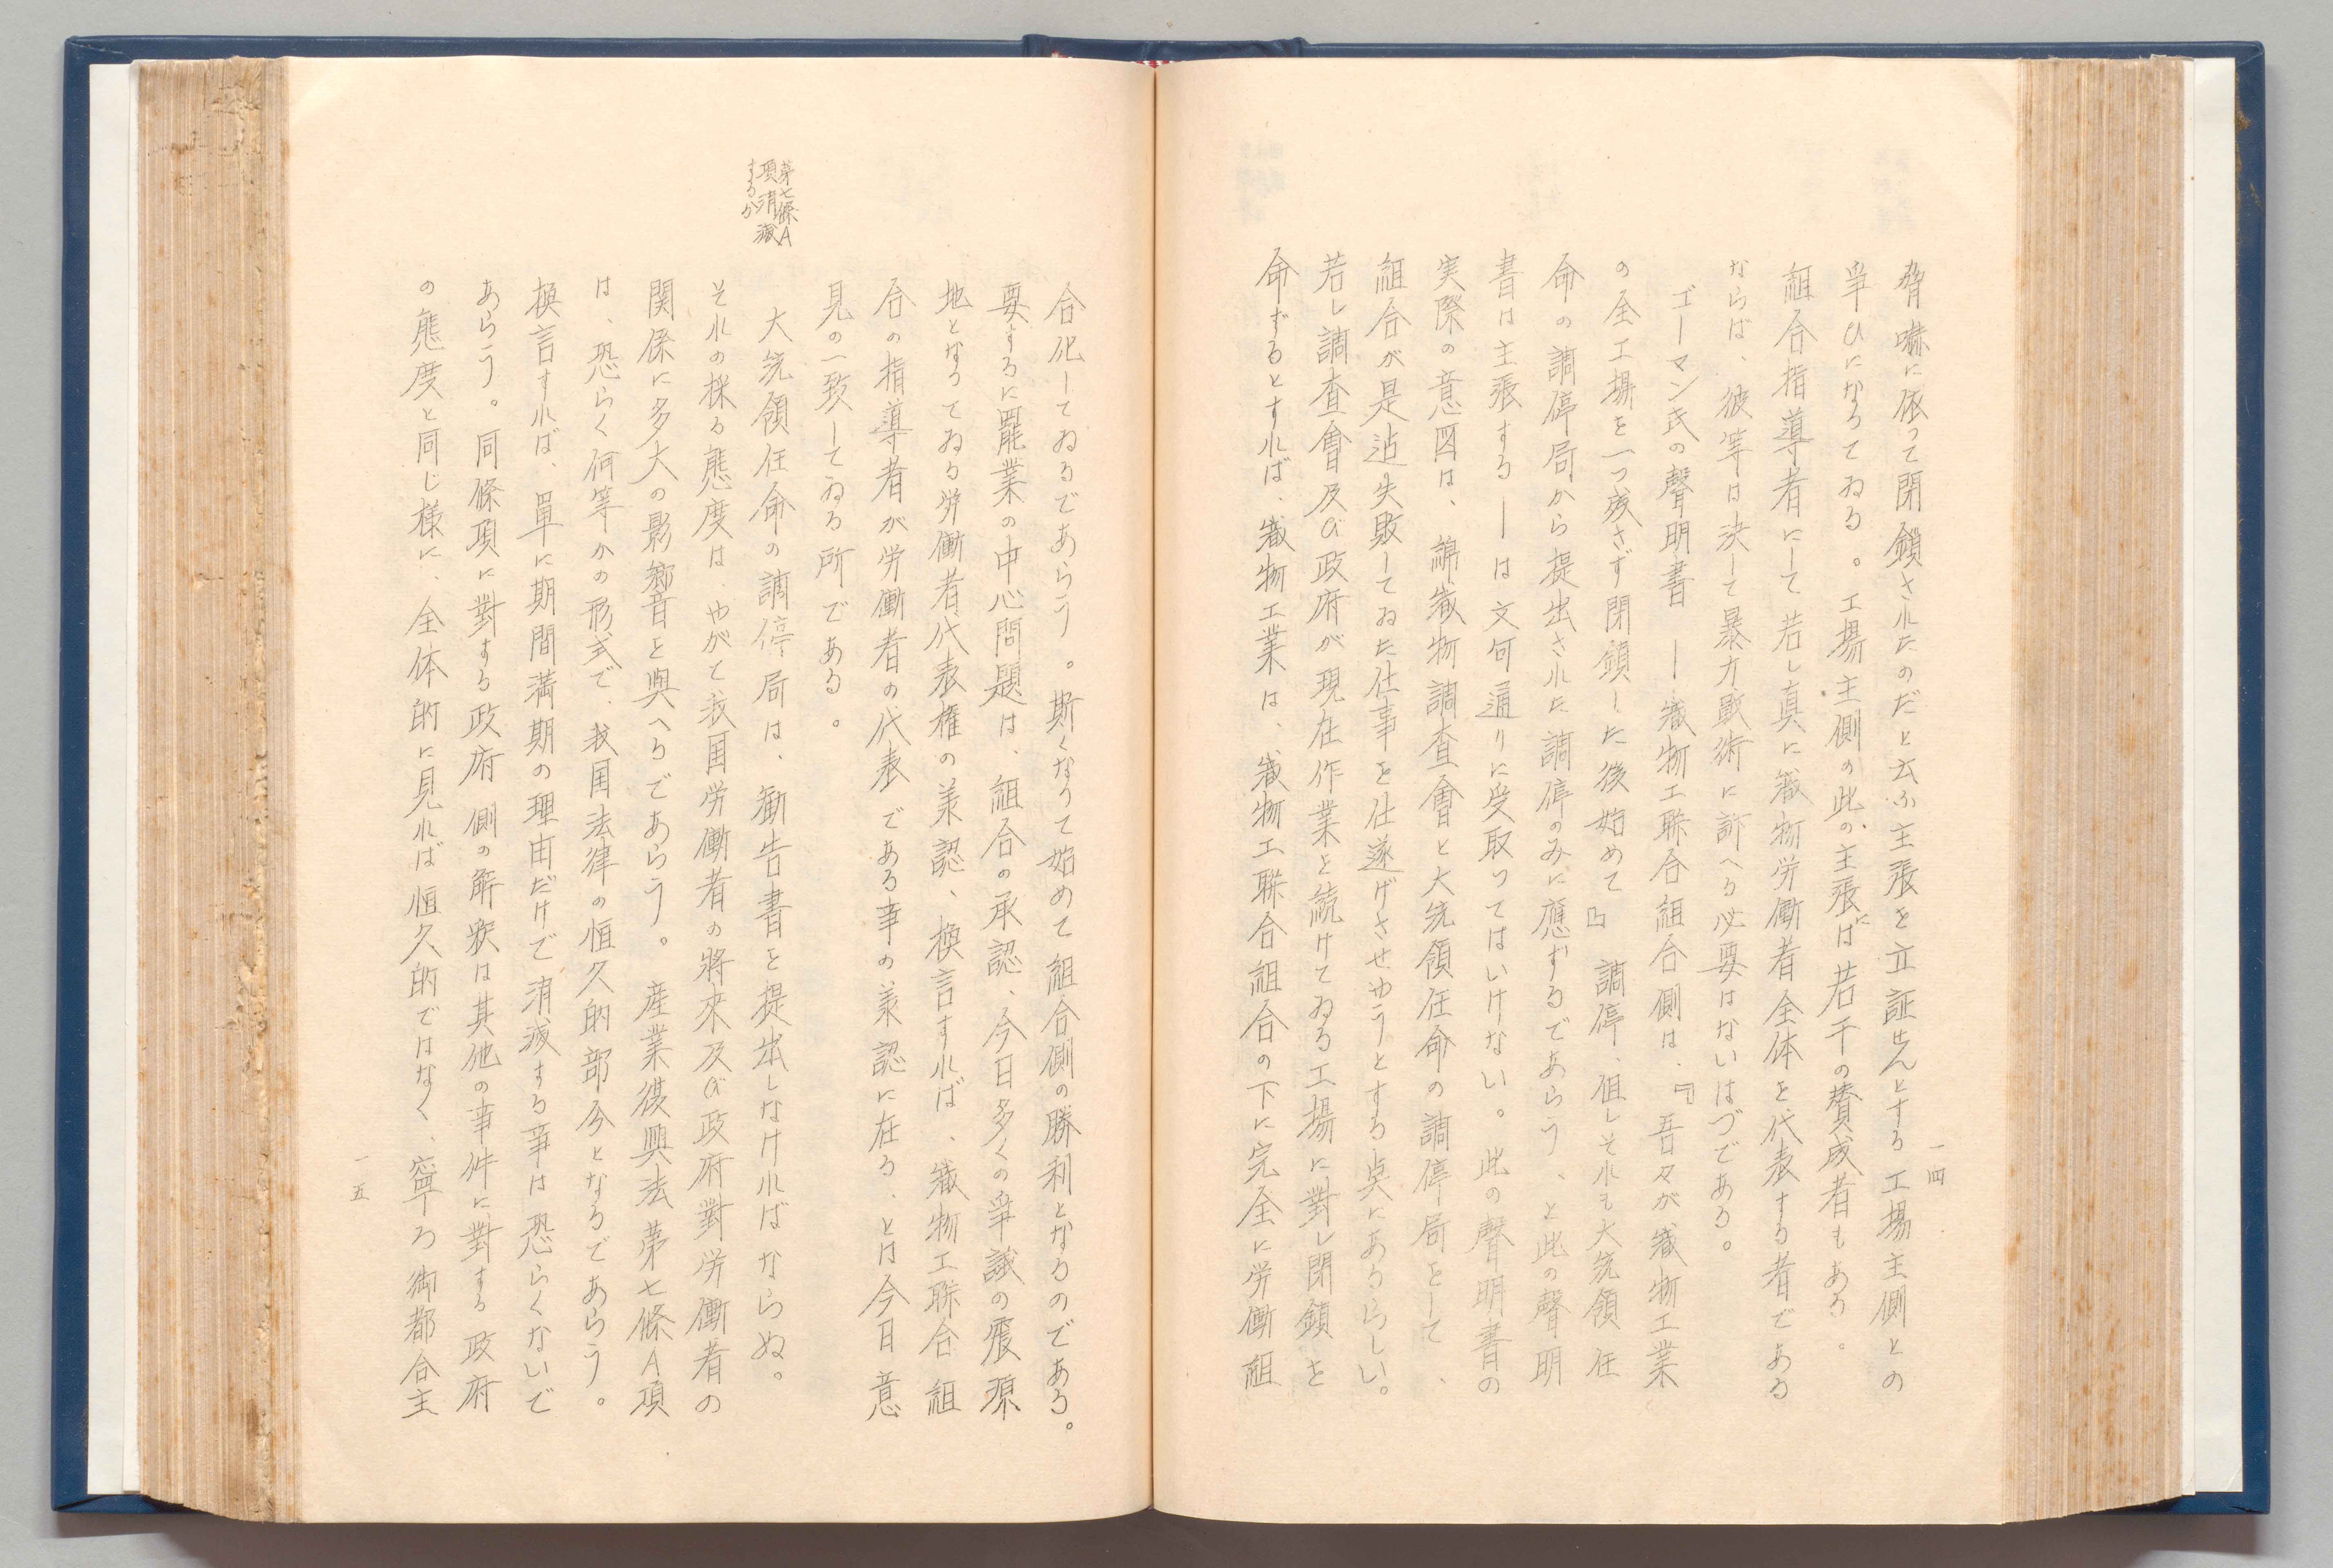 脅嚇に依って閉鎖されたのだと云ふ主張を立証せんとする工場主側との
爭ひになってゐる。工場主側の此の主張には若干の賛成者もある。
組合指導者にして若し真に織物労働者全体を代表する者である
ならば、彼等は決して暴力戰術に訴へる必要はないはづである。
ゴーマン氏の聲明書 ― 織物工聯合組合側は、『吾々が織物工業
の全工場を一つ残さず閉鎖した後始めて』調停、但しそれも大統領任
命の調停局から提出された調停のみに應ずるであらう、と此の聲明
書は主張する ― は文句通りに受取ってはいけない。此の聲明書の
実際の意図は、綿織物調査會と大統領任命の調停局をして、
組合が是迠失敗してゐた仕事を仕遂げさせやうとする点にあるらしい。
若し調査會及び政府が現在作業を続けてゐる工場に對し閉鎖を
命ずるとすれば、織物工業は、織物工聯合組合の下に完全に労働組
一四
合化してゐるであらう。斯くなりて始めて組合側の勝利となるのである。
要するに罷業の中心問題は、組合の承認、今日多くの爭議の震源
地となってゐる労働者代表権の羕認、換言すれば、織物工聯合組
合の指導者が労働者の代表である事の羕認に在る、とは今日意
見の一致してゐる所である。
第七條A
項消滅
するか
大統領任命の調停局は、勧告書を提出しなければならぬ。
それの採る態度は、やがて我国労働者の將来及び政府對労働者の
関係に多大の影響を與へるであらう。産業復興法第七條A項
は、恐らく何等かの形式で、我国法律の恒久的部分となるであらう。
換言すれば、單に期間満期の理由だけで消滅する事は恐らくないで
あらう。同條項に對する政府側の解釈は其他の事件に對する政府
の態度と同じ様に、全体的に見れば恒久的ではなく、寧ろ御都合主
一五